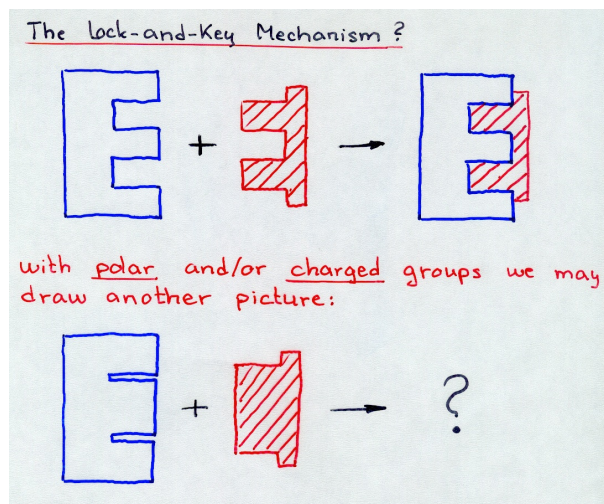 The Lock-and-Key Mechanism ?
+
with polar and/or charged groups we may
draw another picture:
+ ?